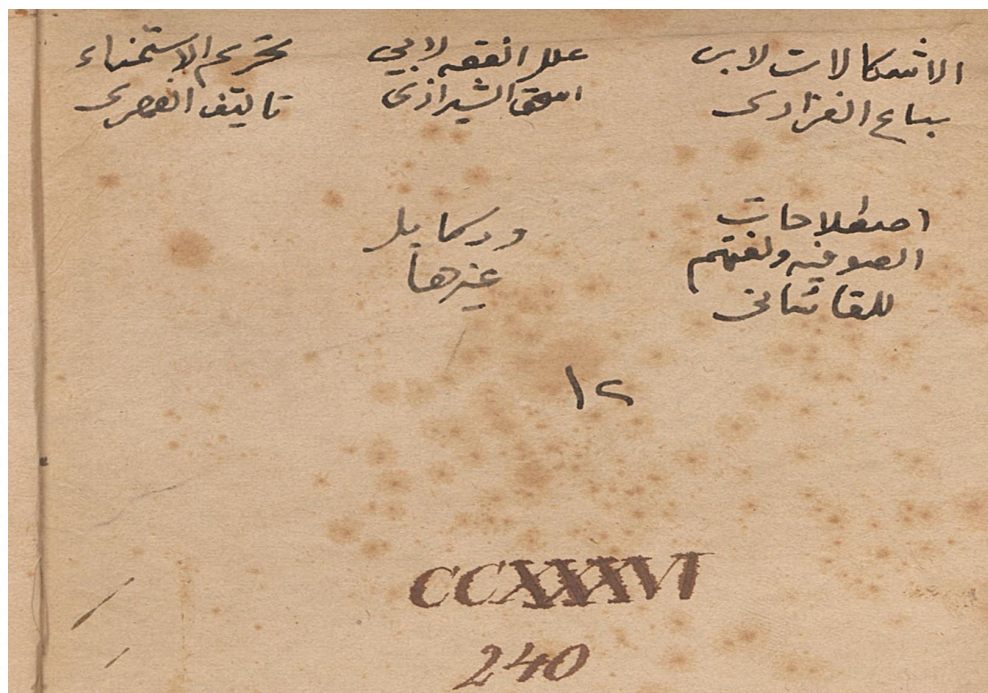 الاشكالات لابى
سباع الفزارى
علل الفقه لابي
اسحق الشيرازى
تحريم الاستمناء
تاليف الغمرى
اصطلاحات
الصوفيه ولغتهم
للقاشانى
ورسايل
غيرها
١٢
CCXXXVI
240